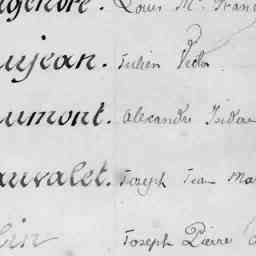 ngendre. Louis M. Franç
ujean. Julien Victor
aumont. Alexandre Isidore
auvalet. Joseph Jean Ma
lin Joseph Pierre